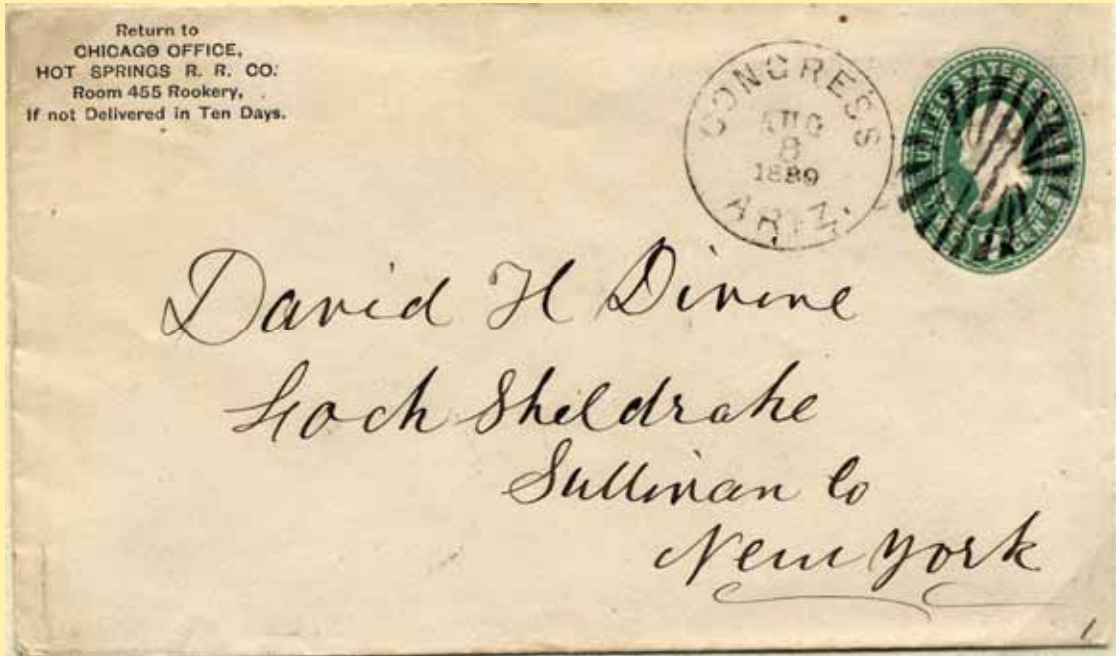 Return to
CHICAGO OFFICE,
HOT SPRINGS R. R. CO.
Room 455 Rookery,
If not Delivered in Ten Days.
CONGRESS
AUG
8
1889
ARIZ.
UNITED STATES
David H Divine
Loch Sheldrake
Sullivan Co
New York
1